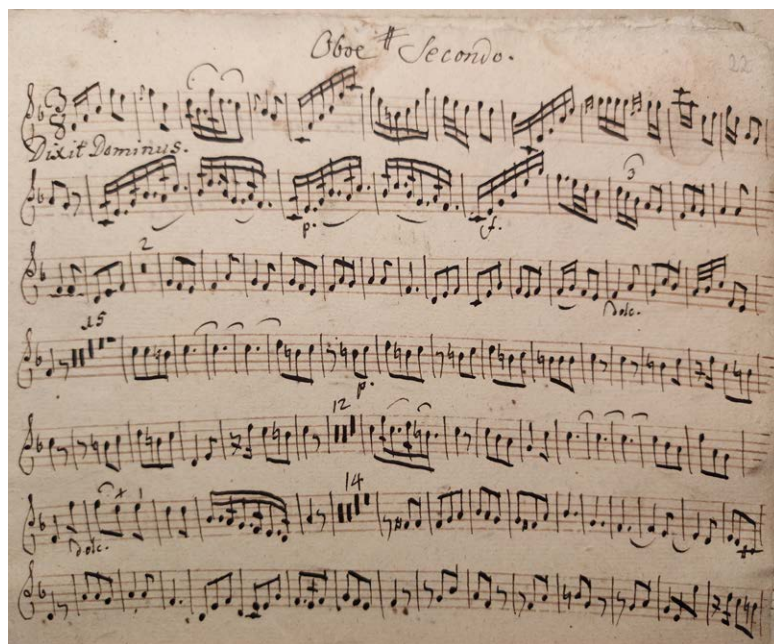 Oboe Secondo.
22
3
8
Dixit Dominus.
3
p.
f.
2
Dolc.
15
p.
12
14
Dolc.